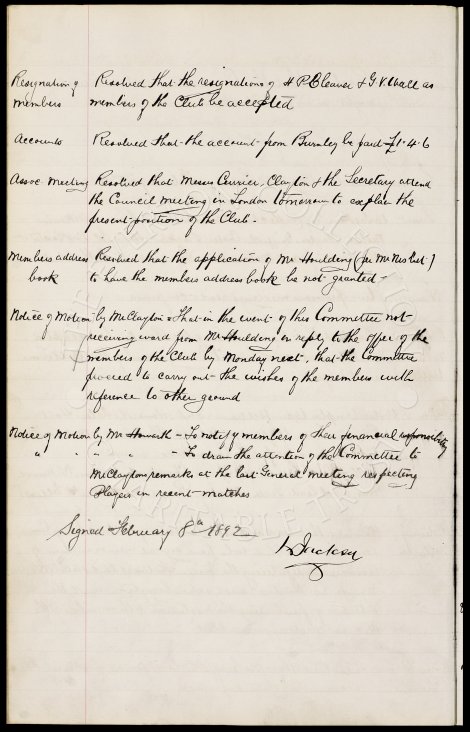 Resignation of Resolved that the resignations of H P Cleaver & G V Wall as
Members members of the Club be accepted
Accounts Resolved that the account from Burnley be paid £1·4·6
Assoc. Meeting Resolved that Messrs Currier, Clayton & the Secretary attend
the Council meeting in London tomorrow to explain the
present position of the Club.
Members address Resolved that the application of Mr Houlding (per Mr )
book to have the members address book be not granted -
Notice of Motion by Mr Clayton That in the event of this Committee not
receiving word from Mr Houlding in reply to the offer of the
members of the Club by Monday next, that the Committee
proceed to carry out the wishes of the members with
reference to other ground
Notice of Motion by Mr Howarth - To notify members of their financial responsibility
" " " " - To draw the attention of the Committee to
Mr Claytons remarks at the last General meeting respecting
Players in recent matches
Signed February 8th 1892